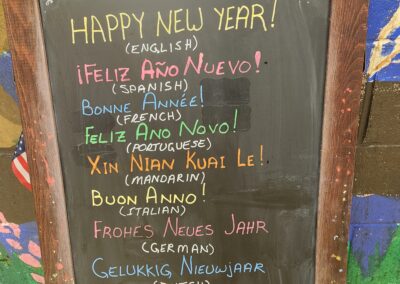 HAPPY NEW YEAR!
(ENGLISH)
¡FELIZ AÑO NUEVO!
(SPANISH)
BONNE ANNÉE!
(FRENCH)
FELIZ ANO NOVO!
(PORTUGUESE)
XIN NIAN KUAI LE!
(MANDARIN)
BUON ANNO!
(ITALIAN)
FROHES NEUES JAHR
(GERMAN)
GELUKKIG NIEUWJAAR